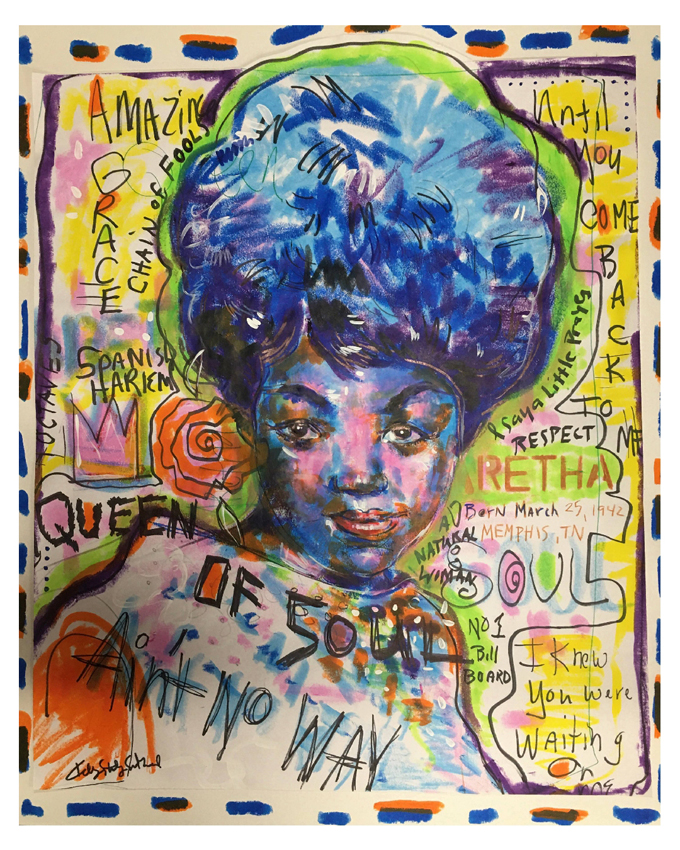 AMAZING
GRACE
CHAIN OF FOOLS
Until
You
COME
BACK
TO
ME
I Say a Little Prayer
OCTAVES
SPANISH
HARLEM
RESPECT
ARETHA
Born March 25, 1942
MEMPHIS, TN
A
NATURAL
WOMAN
SOUL
QUEEN
OF SOUL
NO 1
Bill
BOARD
Ain't NO WAY
I Knew
You were
WAiting
On
me